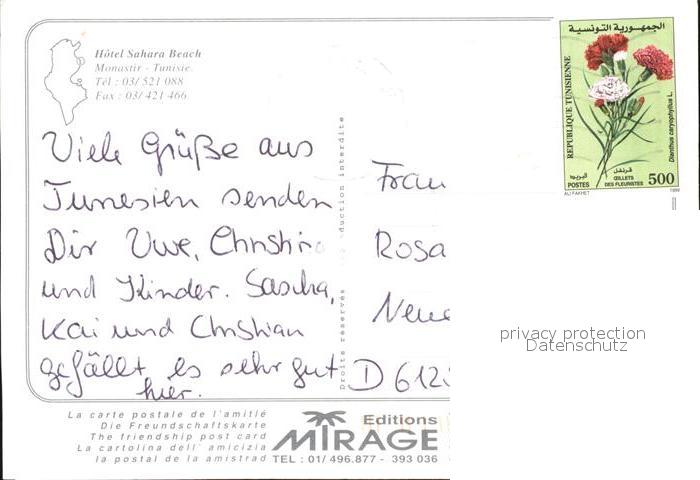 Hôtel Sahara Beach
Monastir - Tunisie.
Tél : 03/ 521 088
Fax : 03/ 421 466.
Viele Grüße aus
Tunesien senden
Dir Uwe, Christin
und Kinder. Sascha,
Kai und Christian
gefällt es sehr gut
hier.
Droits réservés
duction interdite
Frau
Rosa
Neue
D 612
الجمهورية التونسية
REPUBLIQUE TUNISIENNE
Dianthus caryophyllus L.
قرنفل
البريد
POSTES
ŒILLETS
DES FLEURISTES
500
ALI FAKHET
1999
privacy protection
Datenschutz
La carte postale de l'amitié
Die Freundschaftskarte
The friendship post card
La cartolina dell' amicizia
la postal de la amistrad
Editions
MIRAGE
TEL : 01/ 496.877 - 393 036